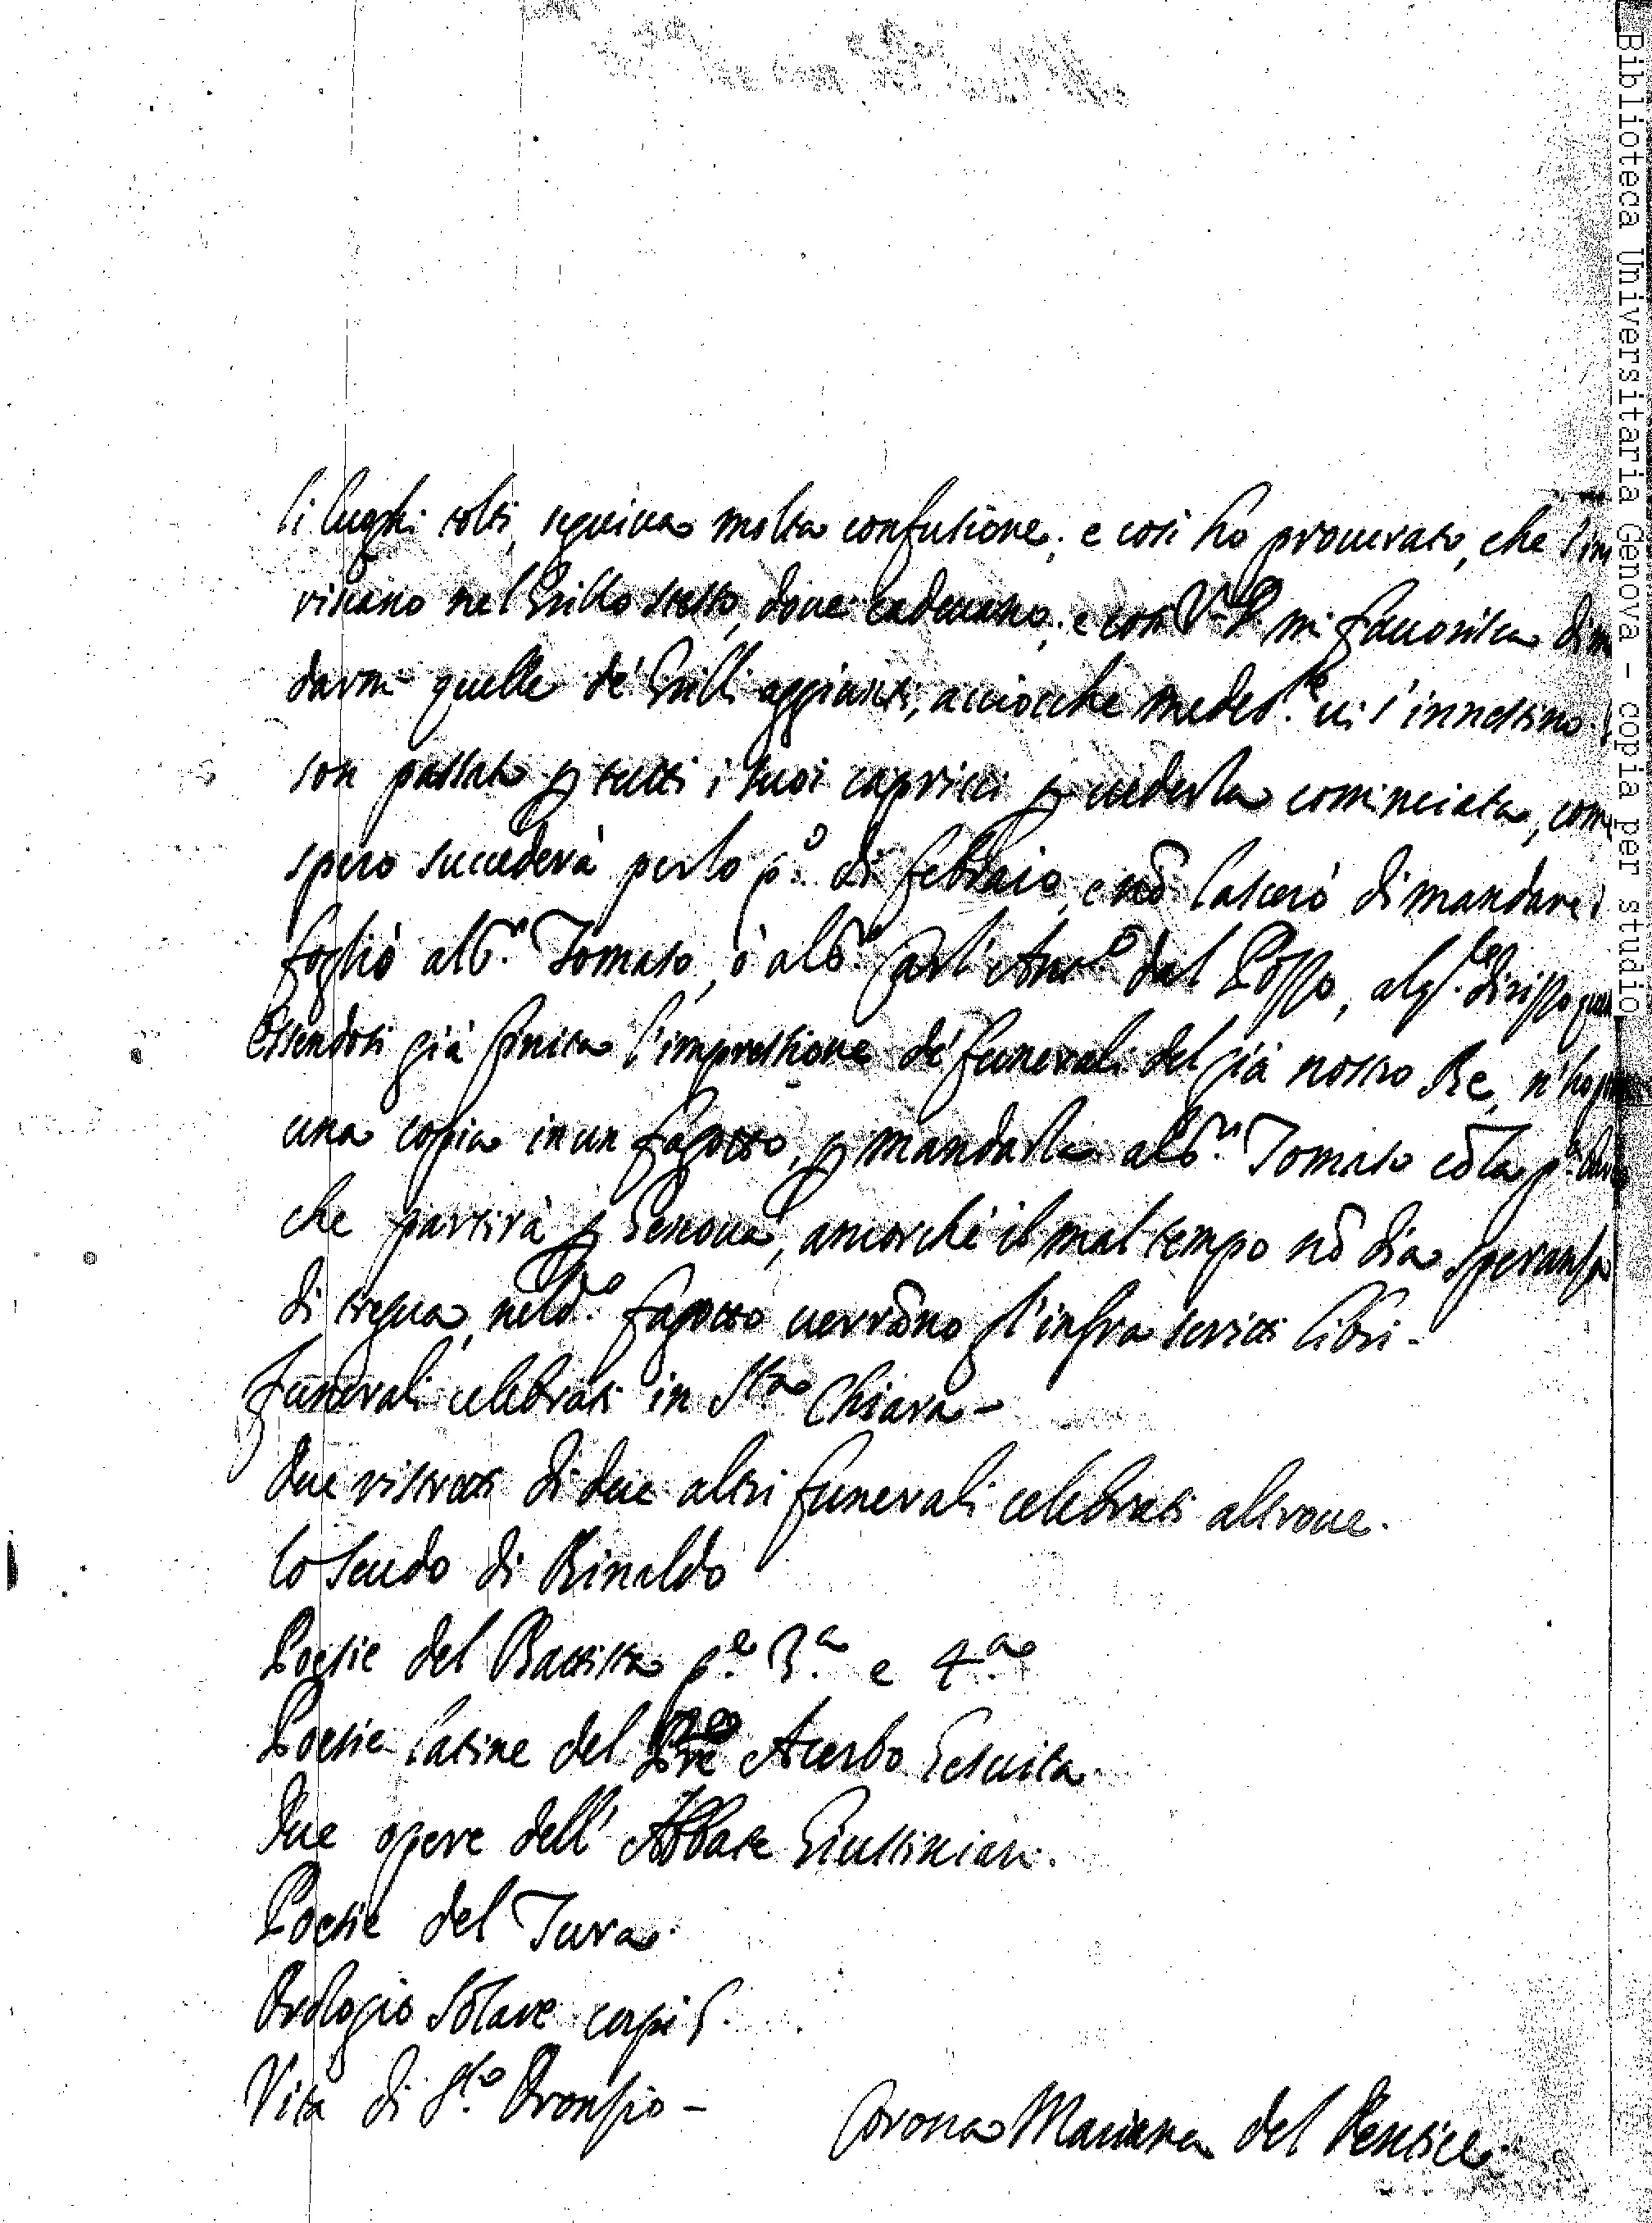 li luoghi tolti, seguiva molta confusione; e così hò procurato, che s'im
rischino nel Grillo stesso, dove cadevano; e così V. P. mi favorisca di m
darmi quelle de' Grilli aggiunti, acciocche medes.te vi s'innestino.
son passato p tutti i suoi capricci p vederla cominciata, com
spero succederà perlo p.o di febraio, e nõ lascerò di mandare i
foglio al S.r Tomaso, ò al S.r Carl'Ant.o dal Pozzo, al q.le
Essendosi già finita l'impressione de' funerali del già nostro Re, n'ho
una copia in un fagotto, p mandarla al S.r Tomaso cõ la p.a
che partirà p Genova, ancorchè il mal tempo nõ dia speranza
di tregua, nel d.o fagotto verrãno gl'infrascritti libri-
funerali celebrati in S.ta Chiara-
Due ristretti di due altri funerali celebrati altrove.
Lo Scudo di Rinaldo
Poesie del Battista p.a 3.a e 4.a
Poesie latine del Pre Acerbo Gesuita.
Due opere dell'Abbate Giustiniani.
Poesie del Tura.
Orologio Solare corpi 5.
Vita di S.to Oronzio-
Corona Mariana del Pentice.
Biblioteca Universitaria Genova - copia per studio